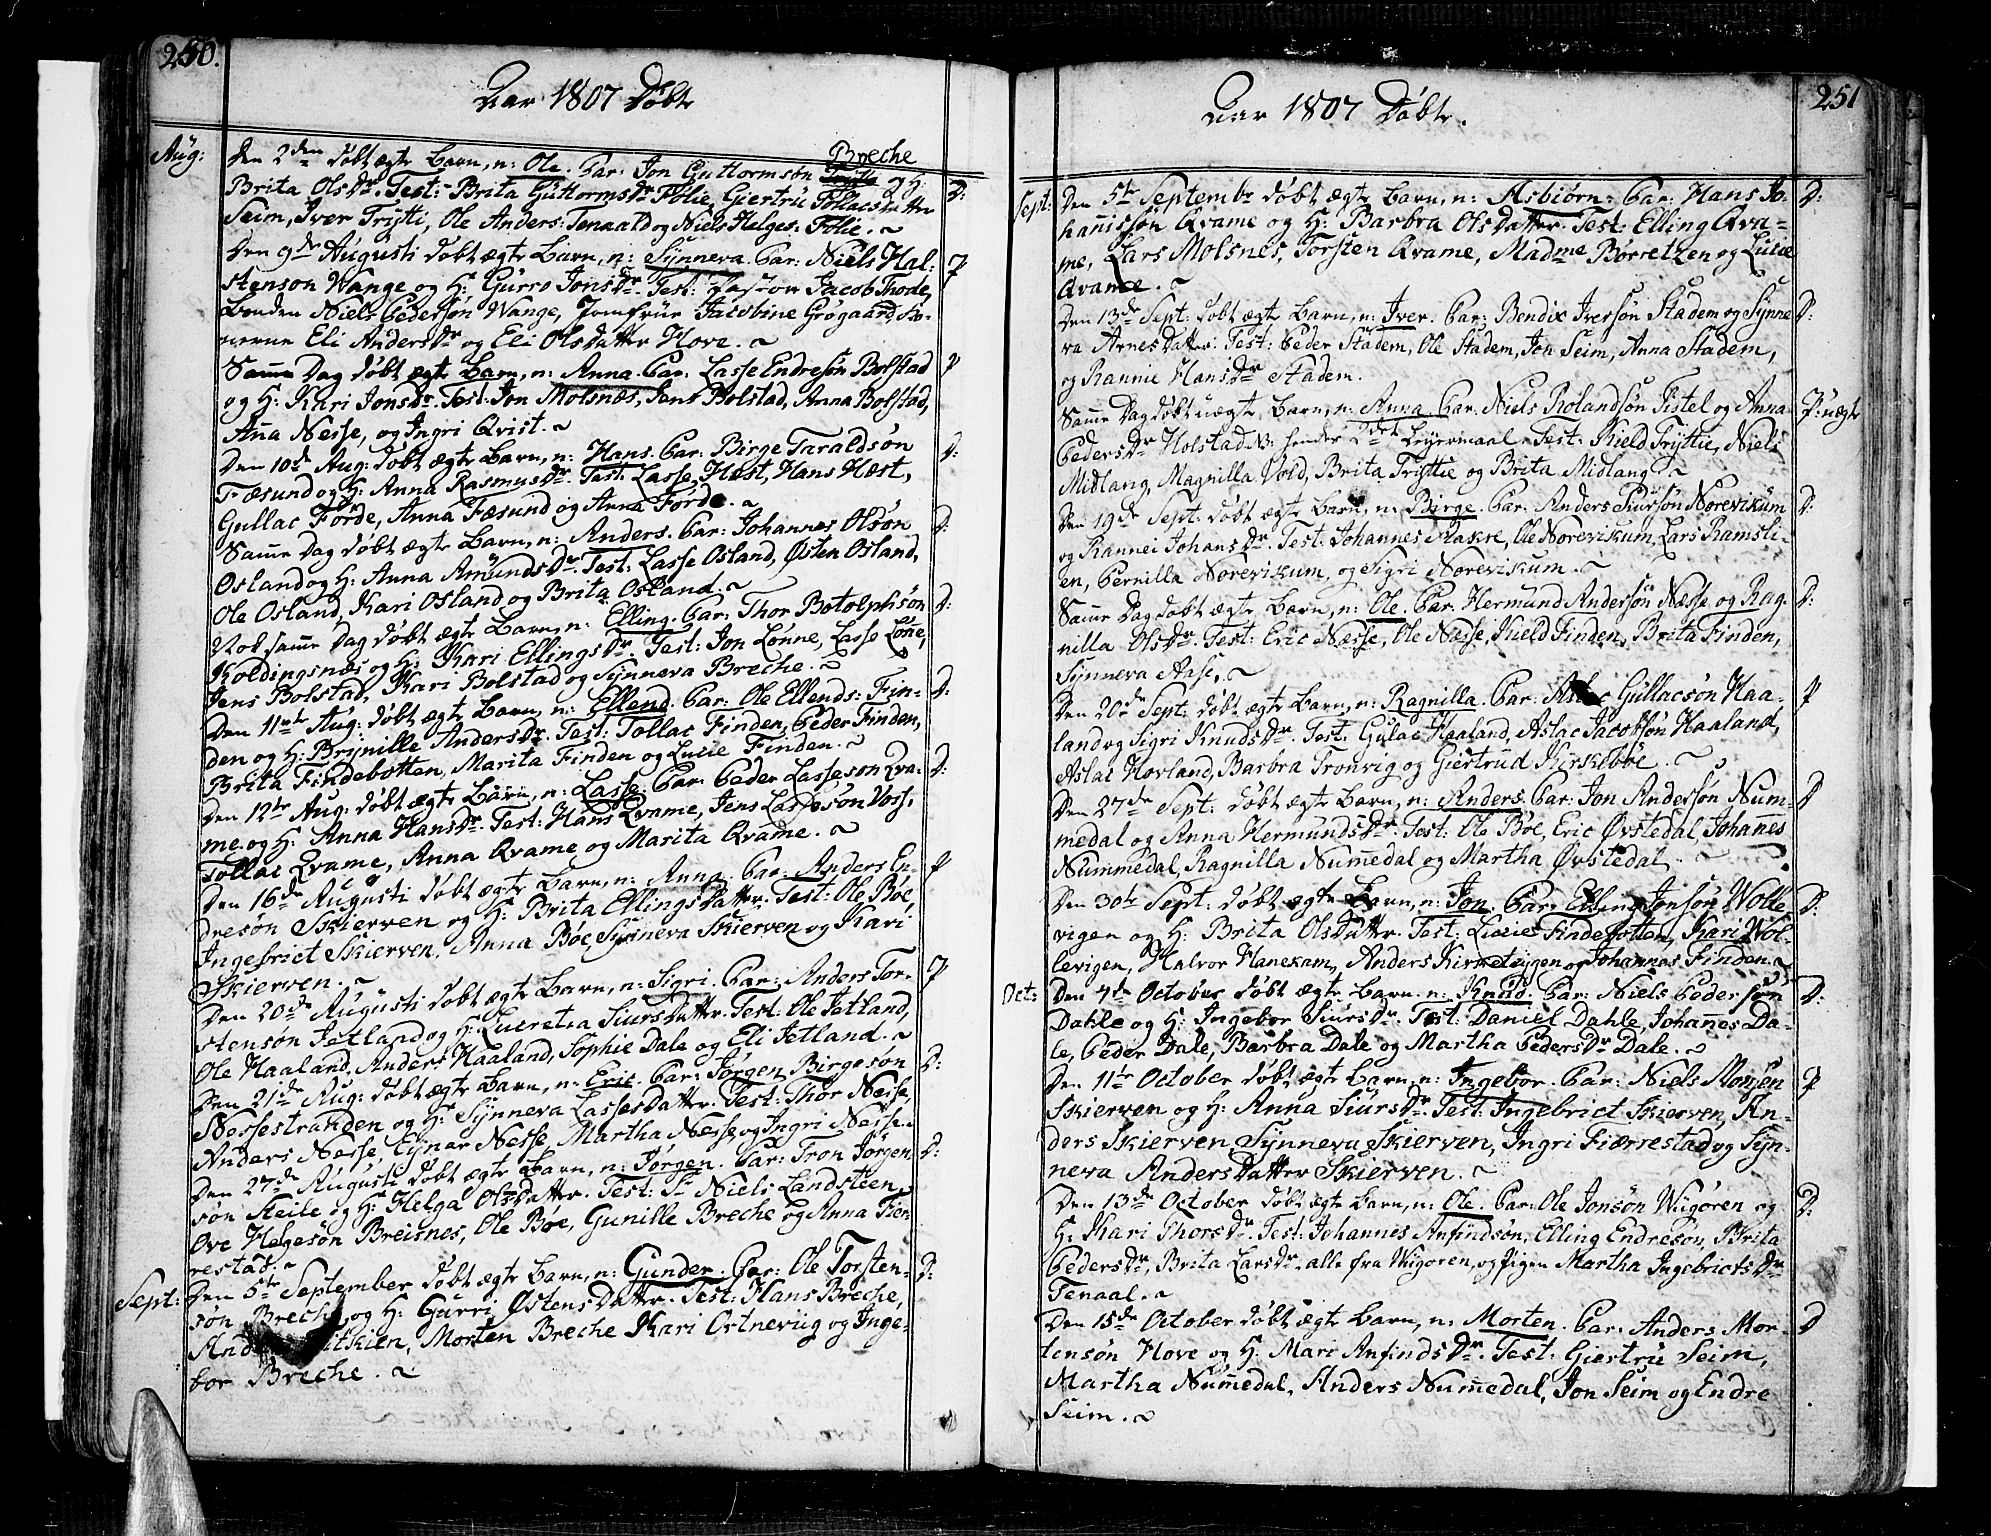 250.
Aar 1807 Døbte
Aug: Den 2den døbt ægte Barn, n: Ole. Par: Jon Guttormsøn Breche og H:
Brita OlsDr. Test: Brita GuttormsDr Følie, Giertrü Tollacsdatter D:
Seim, Iver Trÿtti, Ole Anders: Tenaald og Niels Helges: Følie. ~
Den 9de Augusti døbt ægte Barn, n: Sÿnneva. Par: Niels Hal-
stenson Wange og H: Gürro JonsDr. Test: Pastor Jacob Thode, P
Bonden Niels Pedersøn Wange, Jomfrüe Jacobine Grøgaard, Ko-
nerne Eli AndersDr og Eli Olsdatter Hove. ~
Samme Dag døbt ægte Barn, n: Anna. Par: Lasse Endresøn Bolstad P
og H: Kari JonsDr. Test: Jon Molsnæs, Jens Bolstad, Anna Bolstad,
Anna Nesse, og Ingri Qvist. ~
Den 10de Aug: døbt ægte Barn, n: Hans. Par: Birge Taraldsøn D:
Fæsund og H: Anna RasmusDr. Test: Lasse Høst, Hans Høst,
Gullac Førde, Anna Fæsund og Anna Førde. ~
Samme Dag døbt ægte Barn, n: Anders. Par: Johannes Olsøn D:
Osland og H: Anna AmündsDr. Test: Lasse Osland, Østen Osland,
Ole Osland, Kari Osland og Brita Osland. ~
Nok samme Dag døbt ægte Barn, n: Elling. Par: Thor Botolphsøn D:
Koldingsnæs og H: Kari EllingsDr. Test: Jon Lønne, Lasse Løne,
Jens Bolstad, Kari Bolstad og Sÿnneva Breche. ~
Den 11te Aug: døbt ægte Barn, n: Ellend. Par: Ole Ellends: Fin- D:
den og H: Brÿnille AndersDr. Test: Tollac Finden, Peder Finden,
Brita Findebotten, Marita Finden og Lucie Finden. ~
Den 12te Aug: døbt ægte Barn, n: Lasse. Par: Peder Lasseson Qva- D:
me og H: Anna HansDr. Test: Hans Qvame, Jens Lassesøn Voss,
Tollac Qvame, Anna Qvame og Marita Qvame. ~
Den 16de Augusti døbt ægte Barn, n: Anna. Par: Anders En- P
dresøn Skierven og H: Brita Ellingsdatter. Test: Ole Bøe,
Ingebrict Skierven, Anna Bøe, Sÿnneva Skierven og Kari
Skierven. ~
Den 20de Augüsti døbt ægte Barn, n: Sigri. Par: Anders Tor- P
stensøn Jetland og H: Lucretia Siursdatter. Test: Ole Jetland,
Ole Haaland, Anders Haaland, Sophie Dale og Eli Jetland. ~
Den 21de Aug: døbt ægte Barn, n: Eric. Par: Jørgen Birgeson D:
Nessestranden og H: Sÿnneva Lassesdatter. Test: Thor Nesse,
Anders Nesse, Ejnar Nesse, Martha Nesse, og Ingri Nesse.
Den 27de Augusti døbt ægte Barn, n: Jørgen. Par: Tron Jørgen D:
søn Steile og H: Helga Olsdatter. Test: Sr Niels Landsteen,
Ove Helgesøn Breisnes, Ole Bøe, Gunille Breche og Anna Fier-
restad. ~
Sept: Den 5te September døbt ægte Barn, n: Gunder. Par: Ole Torsten- D:
søn Breche og H: Gurri Østensdatter. Test: Hans Breche,
Morten Breche Kari Ortnevüg og Inge-
bor Breche. ~
251
Aar 1807 Døbte.
Sept: Den 5te Septembr døbt ægte Barn, n: Asbiørn. Par: Hans Jo- D:
hannissøn Qvame og H: Barbra Olsdatter. Test: Elling Qva-
me, Lars Molsnes, Torsten Qvame, Madme Børretzen og Lucie
Qvame. ~
Den 13de Sept: døbt ægte Barn, n: Iver. Par: Bendix Iversøn Stadem og Sÿnne D:
va Arnesdatter. Test: Peder Stadem, Ole Stadem, Jon Seim, Anna Stadem,
og Rannie HansDr Stadem.
Samme Dag døbt uægte Barn, n: Anna. Par: Niels Rolandsøn Tistel og Anna P: uægte
PedersDr Holstad NB: hendes 2det Leyermaal. Test: Kield Trÿttie, Niels
Midlang, Magnilla Vold, Brita Trÿttie og Brita Midlang. ~
Den 19de Sept: døbt ægte Barn, n: Birge. Par: Anders Siursøn Norevikum D:
og Rannei JohansDr. Test: Johannes Makre, Ole Norevikum, Lars Ramsli-
en, Pernilla Norevikum, og Sigri Norevikum. ~
Samme Dag døbt ægte Barn, n: Ole. Par: Hermund Andersøn Næsse og Rag- D:
nilla OlsDr. Test: Eric Næsse, Ole Næsse, Kield Finden, Brita Finden,
Sÿnneva Aase. ~
Den 20de Sept: døbt ægte Barn, n: Ragnilla. Par: Aslac Gullacsøn Haa- P
land og Sigri KnudsDr. Test: Gulac Haaland, Aslac Jacobsøn Haaland,
Aslac Hovland, Barbra Tronvig og Giertrud Kirkebøe. ~
Den 27de Sept: døbt ægte Barn, n: Anders. Par: Jon Andersøn Num- D
medal og Anna HermundsDr. Test: Ole Bøe, Eric Øvstedal, Johannes
Nummedal, Ragnilla Nummedal og Martha Øvstedal. ~
Den 30te Sept: døbt ægte Barn, n: Jon. Par: Elling Jonsøn Wolle D:
vigen og H: Brita Olsdatter. Test: Lucie Findebotten, Kari Wol-
levigen, Halvor Hanekam, Anders Kirketeigen og Johannes Finden. ~
Oct: Den 4de October døbt ægte Barn, n: Knud. Par: Niels Pedersøn D:
Dahle og H: Ingebor SiursDr. Test: Daniel Dahle, Johannes Da-
le, Peder Dale, Barbra Dale og Martha PedersDr Dale. ~
Den 11te October døbt ægte Barn, n: Ingebor. Par: Niels Monsen P
Skierven og H: Anna SiursDr. Test: Ingebrict Skierven, An-
ders Skierven, Sÿnneva Skierven, Ingri Fiærrestad og Sÿn-
neva Andersdatter Skierven. ~
Den 13de October døbt ægte Barn, n: Ole. Par: Ole Jonsøn Wiigøren og D:
H: Kari ThorsDr. Test: Johannes Anfindsøn, Elling Endresøn, Brita
PedersDr, Brita LarsDr, alle fra Wigøren, og Pigen Martha IngebrictsDr
Tenaal. ~
Den 15de October døbt ægte Barn, n: Morten. Par: Anders Mor- D
tensøn Hove og H: Mari AnfindsDr. Test: Giertrü Seim,
Martha Nummedal, Anders Nummedal, Jon Seim og Endre
Seim. ~